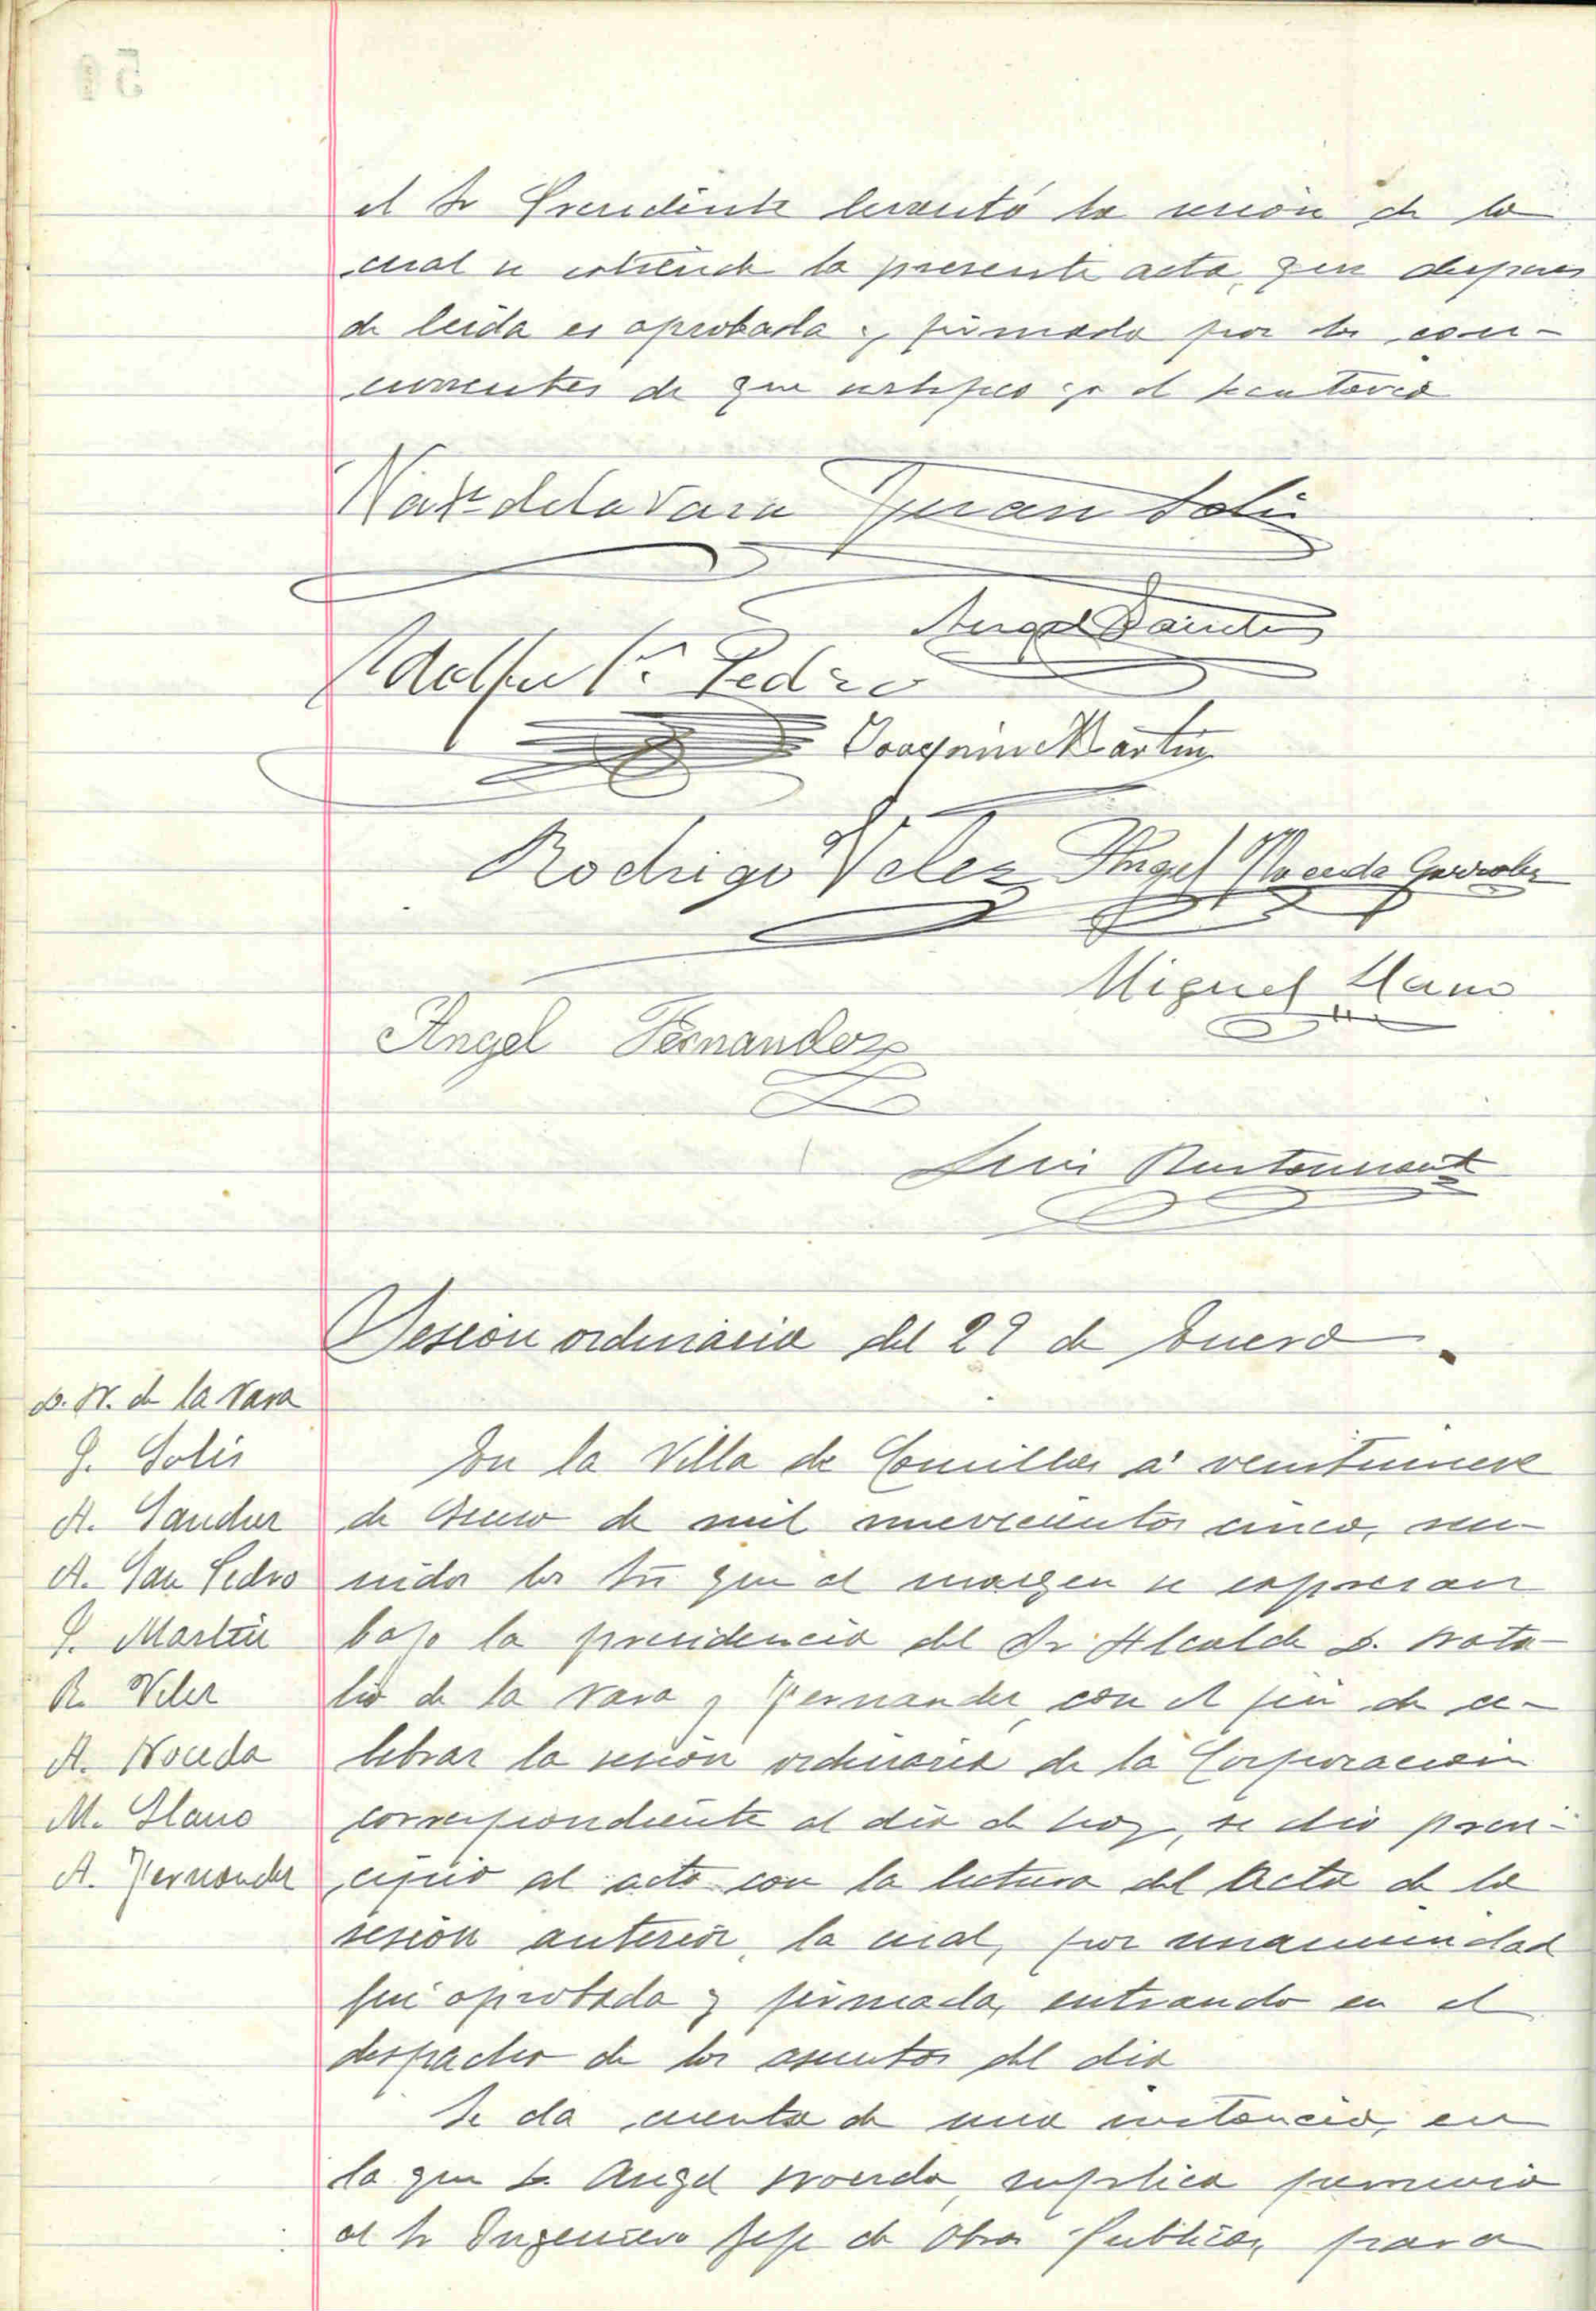 el Sr Presidente levantó la sesión de la
cual se extiende la presente acta, que despues
de leida es aprobada y firmada por los con-
currentes de que certifico yo el Secretario
Nat.º de la Vara Juan Solis
Angel Sanchez
Adolfo S. Pedro
Joaquin Martin
Rodrigo Velez Angel Noceda
Miguel Llano
Angel Fernandez
Luis
Sesión ordinaria del 29 de Enero.
D. N. de la Vara
J. Solis
A. Sanchez
A. San Pedro
J. Martin
R. Velez
A. Noceda
M. Llano
A. Fernandez
En la Villa de Comillas á veintinueve
de Enero de mil novecientos cinco, reu-
nidos los Sres que al margen se expresan
bajo la presidencia del Sr Alcalde D. Nata-
lio de la Vara y Fernandez, con el fin de ce-
lebrar la sesión ordinaria de la Corporación
correspondiente al dia de hoy, se dio prin-
cipio al acto con la lectura del Acta de la
sesión anterior, la cual, por unanimidad
fué aprobada y firmada, entrando en el
despacho de los asuntos del dia
Se da cuenta de una instancia, en
la que D. Angel Noceda, suplica permiso
al Sr Ingeniero Jefe de Obras Publicas, para
50